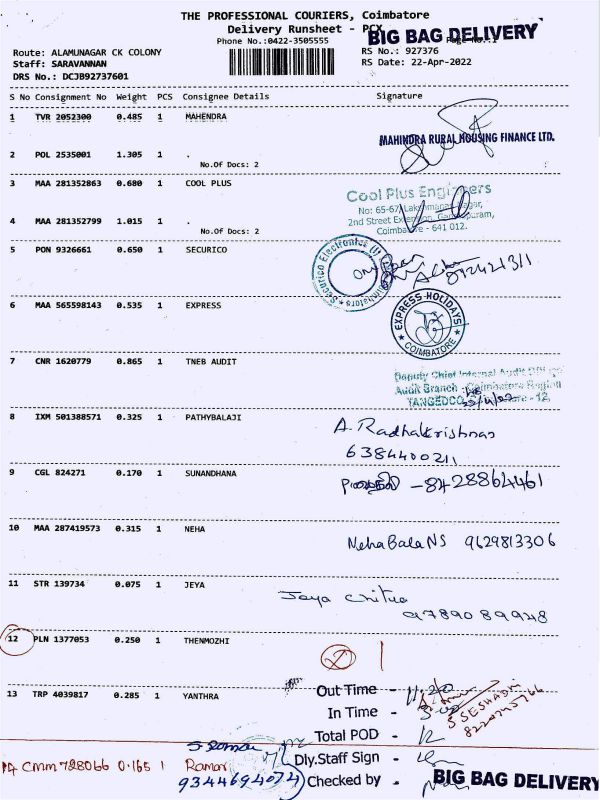 THE PROFESSIONAL COURIERS, Coimbatore
Delivery Runsheet - PCX
BIG BAG DELIVERY
Phone No.:0422-3505555
Route: ALAMUNAGAR CK COLONY
RS No.: 927376
Staff: SARAVANNAN
RS Date: 22-Apr-2022
DRS No.: DCJB92737601
S No Consignment No Weight PCS Consignee Details Signature
1 TVR 2052300 0.485 1 MAHENDRA
MAHINDRA RURAL HOUSING FINANCE LTD.
2 POL 2535001 1.305 1 .
No.Of Docs: 2
3 MAA 281352863 0.680 1 COOL PLUS
Cool Plus Engineers
No: 65-67, Lakshmanan Nagar,
2nd Street Extension, Ganapuram,
Coimbatore - 641 012.
4 MAA 281352799 1.015 1 .
No.Of Docs: 2
5 PON 9326661 0.650 1 SECURICO
Securico Electronics (I) Coimbatore
6 MAA 565598143 0.535 1 EXPRESS
EXPRESS HOLIDAYS
COIMBATORE
7 CNR 1620779 0.865 1 TNEB AUDIT
Deputy Chief Internal Audit Officer
Audit Branch Coimbatore Region
TANGEDCO
8 IXM 501388571 0.325 1 PATHYBALAJI
A. Radhakrishnan
6384400211
9 CGL 824271 0.170 1 SUNANDHANA
-8428864461
10 MAA 287419573 0.315 1 NEHA
Neha Bala NS 9629813306
11 STR 139734 0.075 1 JEYA
Jaya Chitra
9789089948
12 PLN 1377053 0.250 1 THENMOZHI
13 TRP 4039817 0.285 1 YANTHRA
Out Time - 11.20
In Time -
S SESHADRI
Total POD - 12
S. Raman
14 CMM 728066 0.165 1 Raman
Dly.Staff Sign -
9344694074
Checked by -
BIG BAG DELIVERY